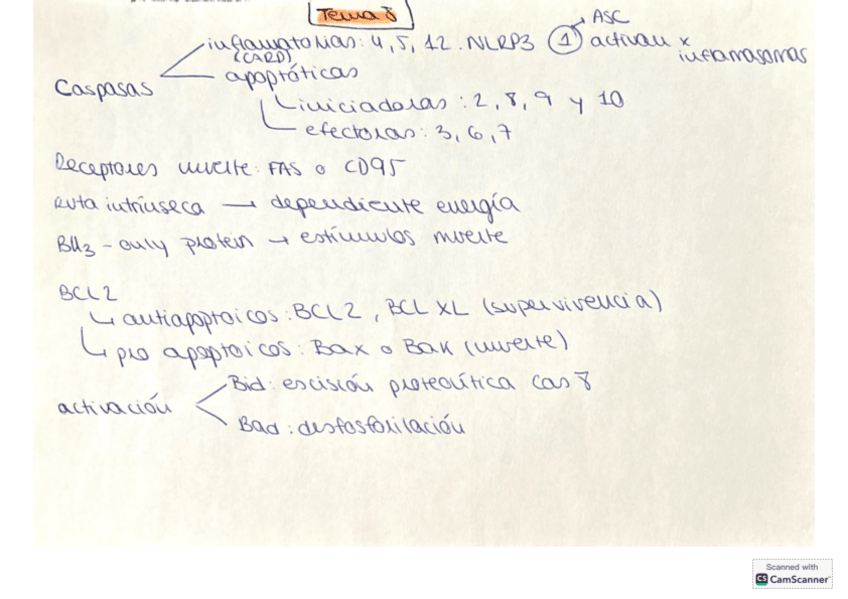 Tema 8
ASC
inflamatorias: 4, 5, 12. NLRP3 ① activan x inflamasomas
(CARD)
Caspasas
apoptóticas
iniciadoras: 2, 8, 9 y 10
efectoras: 3, 6, 7
Receptores muerte: FAS o CD95
ruta intrínseca → dependiente energía
BH3 - only protein → estímulos muerte
BCL2
↳ antiapoptoicos: BCL2, BCL XL (supervivencia)
↳ pro apoptoicos: Bax o Bak (muerte)
Bid: escisión proteolítica cas 8
activación
Bad: desfosforilación
Scanned with
CS CamScanner